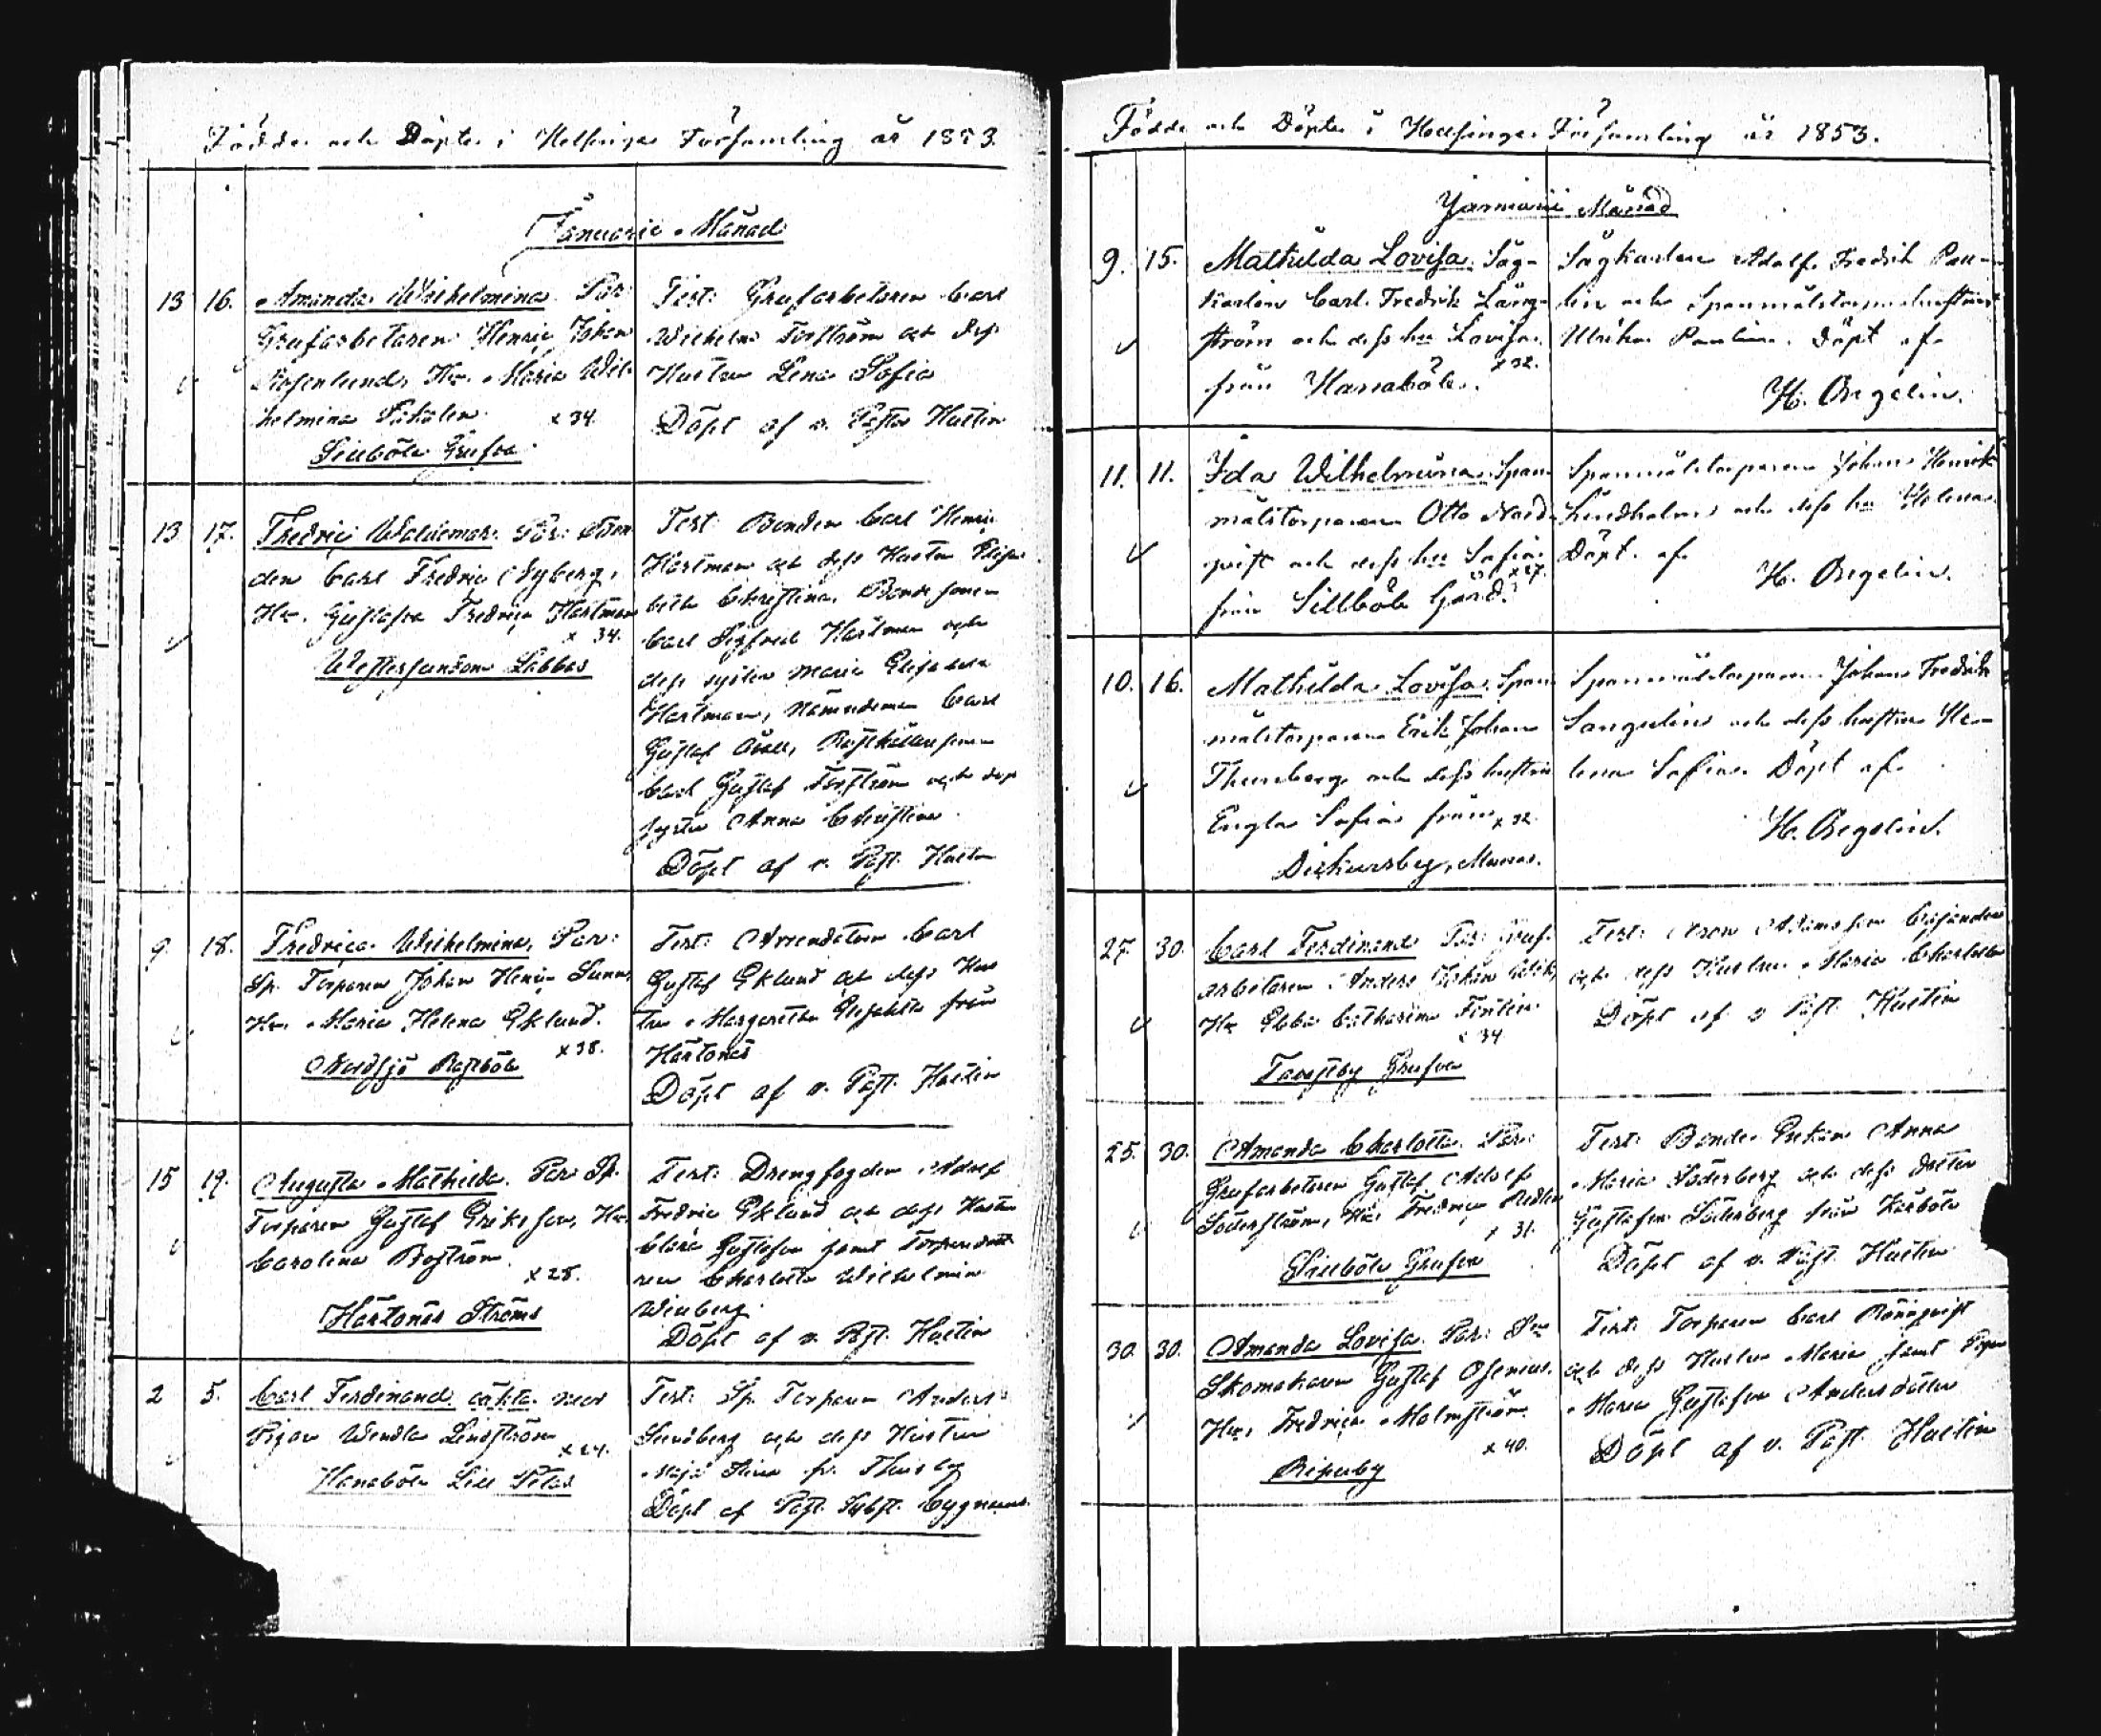 Födde och Döpte i Helsinge Församling år 1853.
Januarii Månad
13 16. Amanda Wilhelmina. Par:
Grufarbetaren Henric Johan
Rosenlund, Hu. Maria Wil-
helmina x 34.
Sillböle Grufva
Test: Grufarbetaren Carl
Wilhelm Forsström och dess
Hustru Lena Sofia
Döpt af v. Pastor Hustin
13 17. Fredric Waldemar. Par: Bon-
den Carl Fredric Nyberg,
Hu. Gustafva Fredrica Hartman
x 34.
Westersundom Labbas
Test: Bonden Carl Henric
Hartman och dess Hustru Elisa-
beth Christina, Bondesonen
Carl Sigfrid Hartman och
dess syster Maria Elisabeth
Hartman, Nämndeman Carl
Gustaf Rusthållarsonen
Carl Gustaf Forsström och dess
syster Anna Christina
Döpt af v. Past. Hustin
9 18. Fredrica Wilhelmina, Par:
Sp. Torparen Johan Henric
Hu. Maria Helena Eklund.
x 38.
Nordsjö Rastböle
Test: Arrendatorn Carl
Gustaf Eklund och dess Hus
tru Margaretha Elisabeth från
Hertonäs
Döpt af v. Past. Hustin
15 19. Augusta Mathilda. Par: Sp.
Torparen Gustaf Eriksson, Hu.
Carolina Boström
x 28.
Hertonäs Ströms
Test: Drengfogden Adolf
Fredric Eklund och dess Hustru
Clara Gustafva samt
Charlotta Wilhelmina
Winberg.
Döpt af v. Past. Hustin
2 5. Carl Ferdinand, oäkta med
Pigan Wendla Lindström
x 24.
Hanaböle Lill Petas
Test: Sp. Torparen Anders
Sundberg och dess Hustru
Maja Stina fr.
Döpt af Past. Subst. Cygnæus
Födde och Döpte i Helsinge Församling år 1853.
Januarii Månad
9. 15. Mathilda Lovisa. Såg-
karlen Carl Fredrik Lång-
ström och dess hu Lovisa
från Hanaböle. x 32.
Sågkarlen Adolf Fredrik Pau-
lin och Spannmålstorparehustrun
Ulrika Paulin. Döpt af
H. Bergelin.
11. 11. Ida Wilhelmina. Span-
målstorparen Otto Nord-
qvist och dess hu Sofia
x 27.
från Sillböle Gård.
Spannmålstorparen Johan Henrik
Lindholm och dess hu Helena.
Döpt af
H. Bergelin.
10. 16. Mathilda Lovisa. Span-
målstorparen Erik Johan
Thunberg och dess hustru
Engla Sofia från x 32.
Dickursby,
Spannmålstorparen Johan Fredrik
Sanguelin och dess hustru He-
lena Sofia. Döpt af
H. Bergelin.
27. 30. Carl Ferdinand Par: Gruf-
arbetaren Anders Johan
Hu Ebba Catharina
x 34
Tavastby Grufva
Test:
och dess Hustru Maria Charlotta
Döpt af v. Past. Hustin
25. 30. Amanda Charlotta. Par:
Grufarbetaren Gustaf Adolf
Söderström, Hu. Fredrica
x 31.
Sillböle Grufva
Test: Bonde Enkan Anna
Maria Söderberg och dess dotter
Gustafva Söderberg från Kårböle
Döpt af v. Past. Hustin
30. 30. Amanda Lovisa. Par:
Skomakaren Gustaf
Hu. Fredrica Malmström
x 40.
Biskuby
Test: Torparen Carl Rönnqvist
och dess Hustru Maria samt Pigan
Maria Gustafva Andersdotter
Döpt af v. Past. Hustin